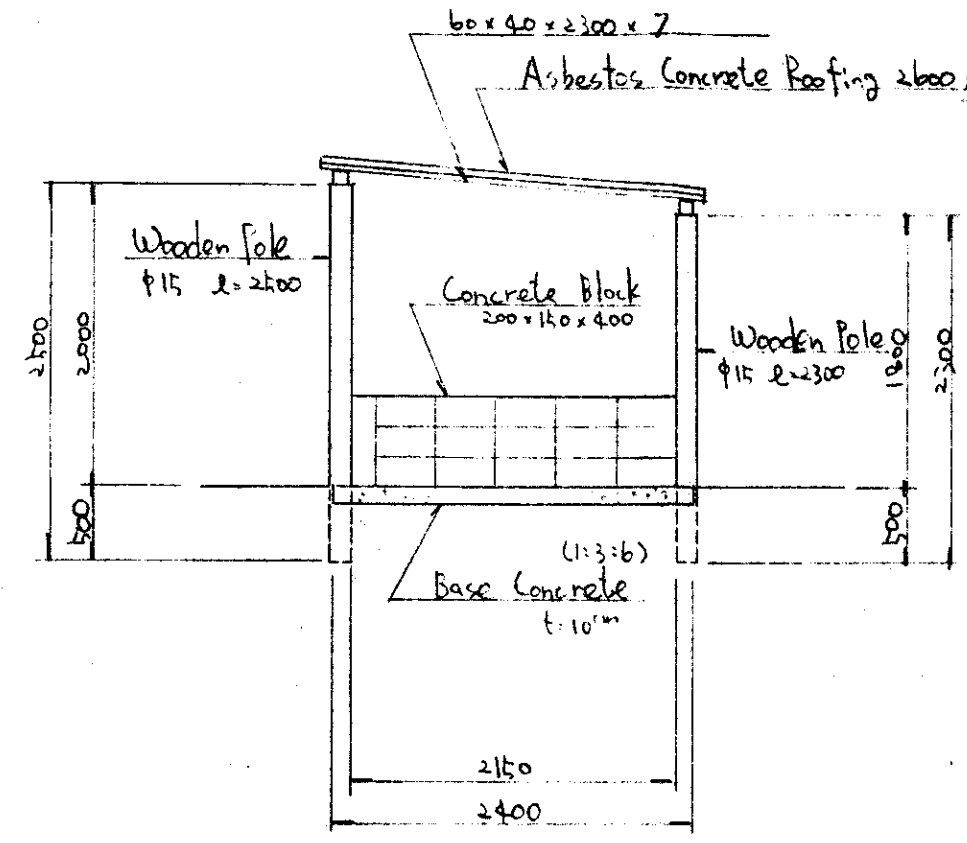 60 x 40 x 2300 x 7
Asbestos Concrete Roofing 2600
Wooden Pole
φ15 l=2500
Concrete Block
200 x 150 x 400
Wooden Pole
φ15 l=2300
2500
2000
500
1800
2300
500
(1:3:6)
Base Concrete
t=10cm
2150
2400